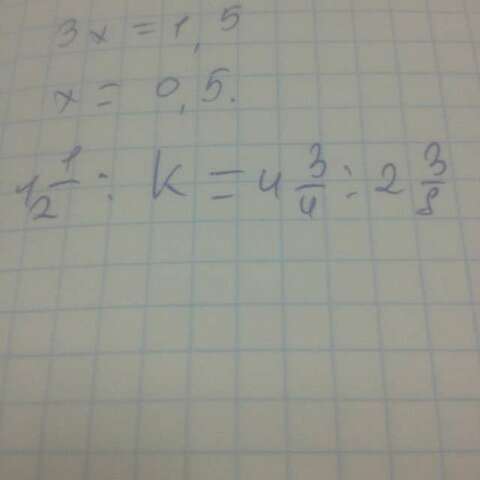 3x = 1,5
x = 0,5.
1 1/2 : K = 4 3/4 : 2 3/8